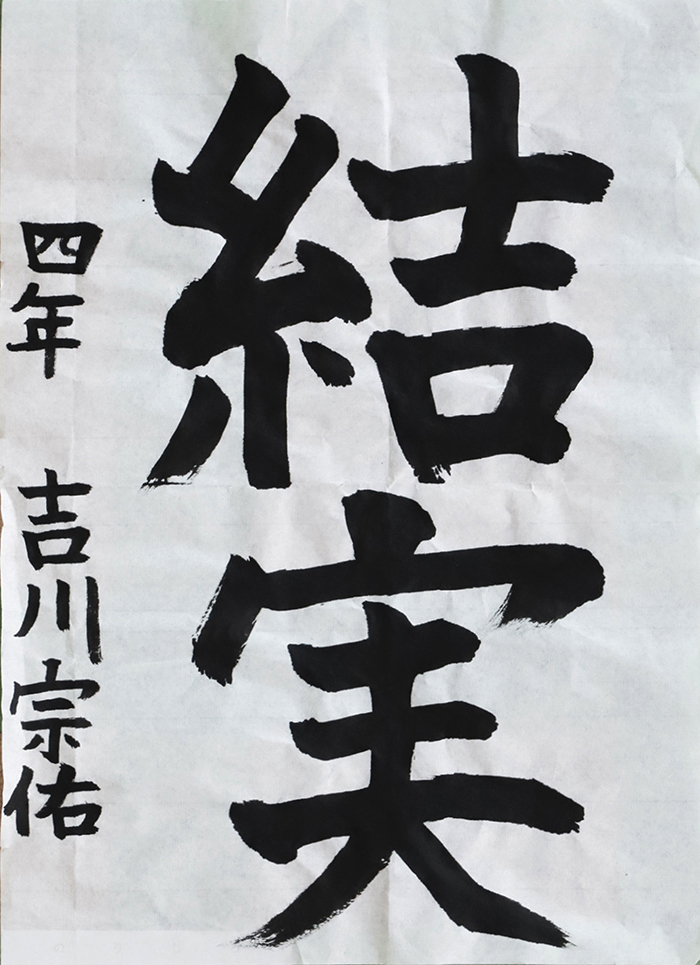 結実
四年 吉川宗佑